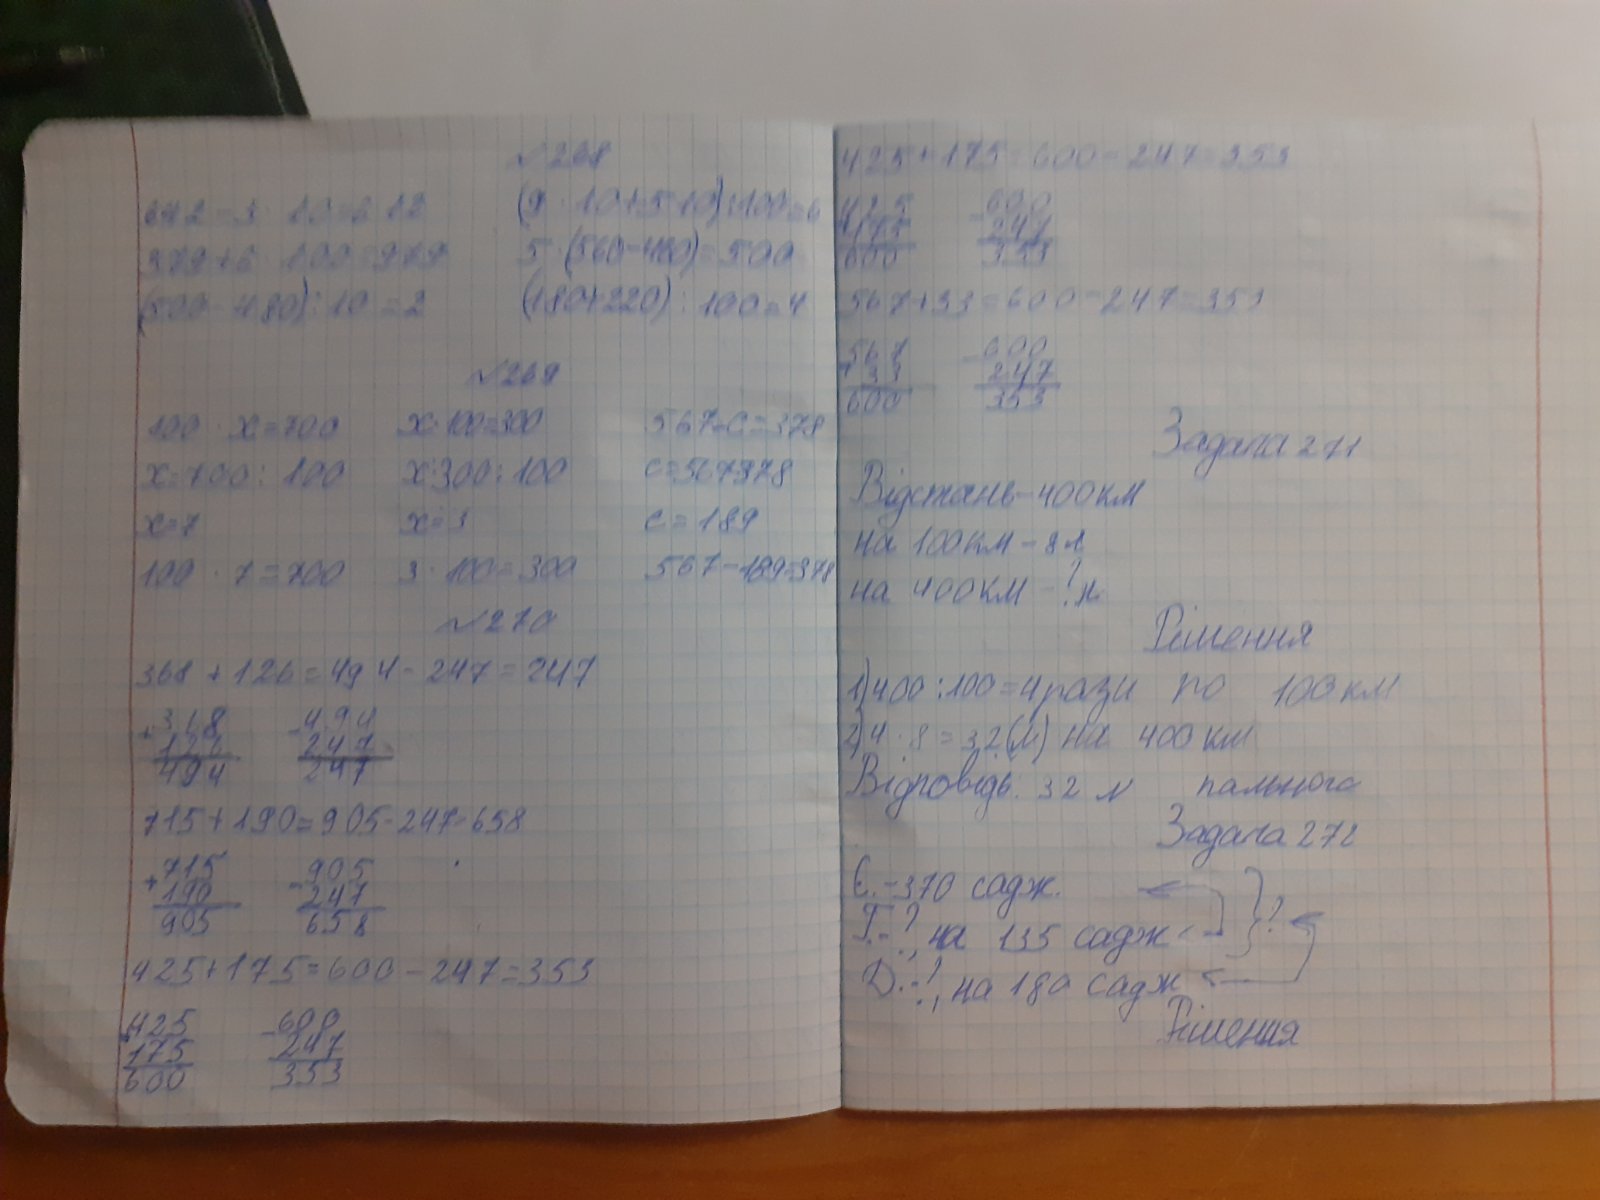 №268
642-3·10=612 (9·10+5·10):100=6
379+6·100=979 5·(560-460)=500
(500-480):10=2 (180+220):100=4
№269
100·x=700 x·100=300 567-c=378
x=700:100 x=300:100 c=567-378
x=7 x=3 c=189
100·7=700 3·100=300 567-189=378
№270
368+126=494-247=247
+368 -494
126 247
494 247
715+190=905-247=658
+715 -905
190 247
905 658
425+175=600-247=353
+425 -600
175 247
600 353
425+175=600-247=353
425 -600
+175 247
600 353
567+33=600-247=353
567 -600
+33 247
600 353
Задача 271
Відстань-400км
на 100км-8л
на 400км-?л
Рішення
1)400:100=4рази по 100км
2)4·8=32(л) на 400км
Відповідь: 32 л пального
Задача 272
Є.-370 садж.
Т.-?, на 135 садж ?
Д.-?, на 180 садж
Рішення